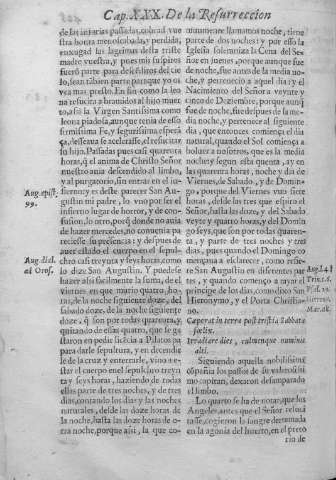 Cap. XXX. De la Resurreccion
de las injurias passadas, cobrad vue
stra honra menoscabada, y perdida,
enxugad las lagrimas desta triste
madre vuestra, y pues mis suspiros
fueró parte para desteñiros del cie
lo, sean tábien parte porque yo os
vea mas presto. En fin como la leo
na resucita a bramidos al hijo muer
to, assi la Virgen Santissima como
leona piadosa, aunque tenia de esso
firmissima Fe, y segurissima, espera
ça, desseaua se acelerasse, el resucitar
su hijo. Passadas pues casi quarenta
horas, q̃ el anima de Christo Señor
nuestro auia descendido al limbo,
y al purgatorio, sin entrar en el in-
fierno; y es deste parecer San Au-
gustin mi padre, lo vno por ser el
infierto lugar de horror, y de con-
fusion, lo otro, porq̃ donde no auia
de hazer mercedes, no conuenia pa
reciesse su presencia: y despues de
auer estado el cuerpo en el sepul-
chro casi treynta y seys horas, como
lo dize San Augustin. Y puedese
hazer assi facilmente la suma, del
viernes en que murio quatro, ho-
ras, de la noche siguiente doze, del
sabado doze, de la noche siguiente
doze, q̃ son por todas quarenta, y
quitando de ellas quatro, que le ga
staron en pedir licécia a Pilatos pa
ra darle sepultura, y en decendir
le de la cruz y enterrarle, vino a e-
star el cuerpo en el sepulcro treyn
ta y seys horas, haziendo de todas
ellas parte de tres noches, y de tres
dias, contando los dias y las noches
naturales, desde las doze horas de
la noche, hasta las doze horas de o-
tra noche, porque assi, la que co-
Aug. epist.
99.
Aug. dial.
al Oros.
munmente llamamos noche, tiene
parte de dos noches: y por esso la
Iglesia solemniza la Cena del Se-
ñor en jueues, porque aunque fue
de noche, fue antes de la media no-
che, y pertenecio a aquel dia: y el
Nacimiento del Señor a veynte y
cinco de Deziembre, porque aunq̃
fue de noche, fue despues de la me-
dia noche, y pertenece al siguiente
dia, que entonces comiença el dia
natural, quando el Sol comiença a
boluer a nosotros, que es la media
noche: y segun esta quenta, ay en
las quarenta horas, noche y dia de
Viernes, de Sabado, y de Domin-
go, porque del Viernes vuo siete
horas, desde las tres que espiro el
Señor, hasta las doze, y del Sabado
veynte y quatro horas, y del Domin
go seys, que son por todas quaren-
ta, y parte de tres noches y tres
dias, pues quando el Domingo co
mençaua a esclarecer, como refie-
re San Augustin en diferentes par
tes, y quando començo a rayar el
principe de los dias, como dixo San
Hieronymo, y el Poeta Christia-
no.
Siguiendo aquella nobilissima
cópañia los passos de su valerosissi
mo capitan, dexaron desamparado
el limbo.
Lo quarto se ha de notar, que los
Angeles, antes que el Señor resuci
tasse, cogieron la sangre derramada
en la agonia del huerto, en el preto
rio de